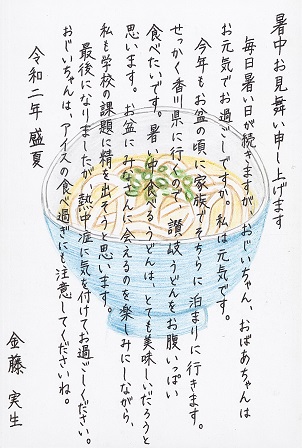 暑中お見舞い申し上げます
毎日暑い日が続きますが、おじいちゃん、おばあちゃんは
お元気でお過ごしですか。私は元気です。
今年もお盆の頃に家族でそちらに泊まりに行きます。
せっかく香川県に行くので、讃岐うどんをお腹いっぱい
食べたいです。暑い中食べるうどんは、とても美味しいだろうと
思います。お盆にみなさんに会えるのを楽しみにしながら、
私も学校の課題に精を出そうと思います。
最後になりましたが、熱中症に気を付けてお過ごしください。
おじいちゃんは、アイスの食べ過ぎにも注意してくださいね。
令和二年 盛夏
金藤 実生